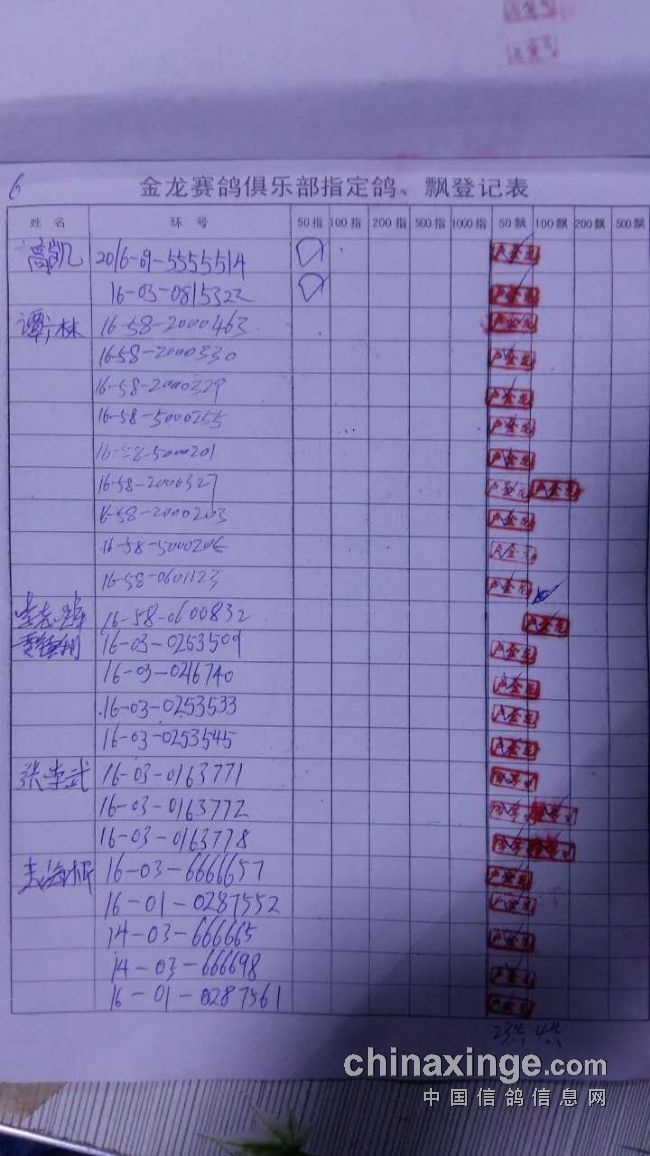 6
金龙赛鸽俱乐部指定鸽、飘登记表
姓名 环号 50指 100指 200指 500指 1000指 50飘 100飘 200飘 500飘
高凯 2016-01-5555514
16-03-0815322
谭广林 16-58-2000463
16-58-2000330
16-58-2000329
16-58-5000255
16-58-5000201
16-58-2000327
16-58-2000203
16-58-5000206
16-58-0601123
16-58-0600832
16-03-0253509
16-03-0216740
16-03-0253533
16-03-0253545
张学武 16-03-0163771
16-03-0163772
16-03-0163778
16-03-6666657
16-01-0287552
14-03-666665
14-03-666698
16-01-0287561
23只 4只
chinaxinge.com
中国信鸽信息网